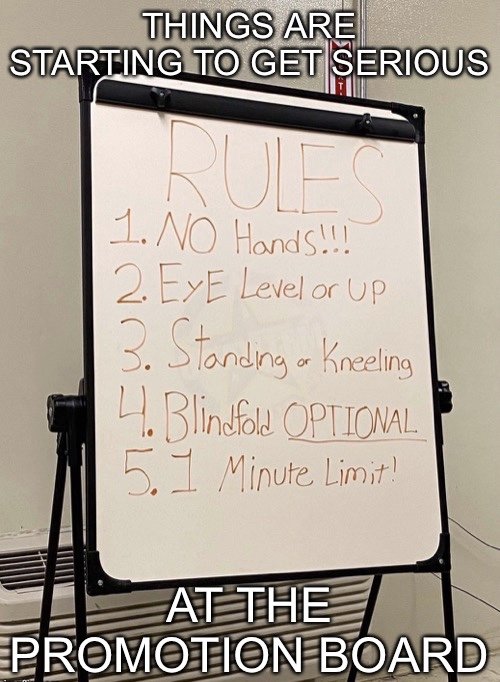 THINGS ARE
STARTING TO GET SERIOUS
RULES
1. NO Hands!!!
2. EyE Level or Up
3. Standing or Kneeling
4. Blindfold OPTIONAL
5. 1 Minute Limit!
AT THE
PROMOTION BOARD